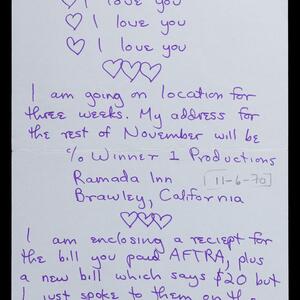 I love you
I love you
I love you
I am going on location for
three weeks. My address for
the rest of November will be
% Winner 1 Productions
Ramada Inn
11-6-70
Brawley, California
I am enclosing a reciept for
the bill you paid AFTRA, plus
a new bill which says $20 but
I just spoke to them on the